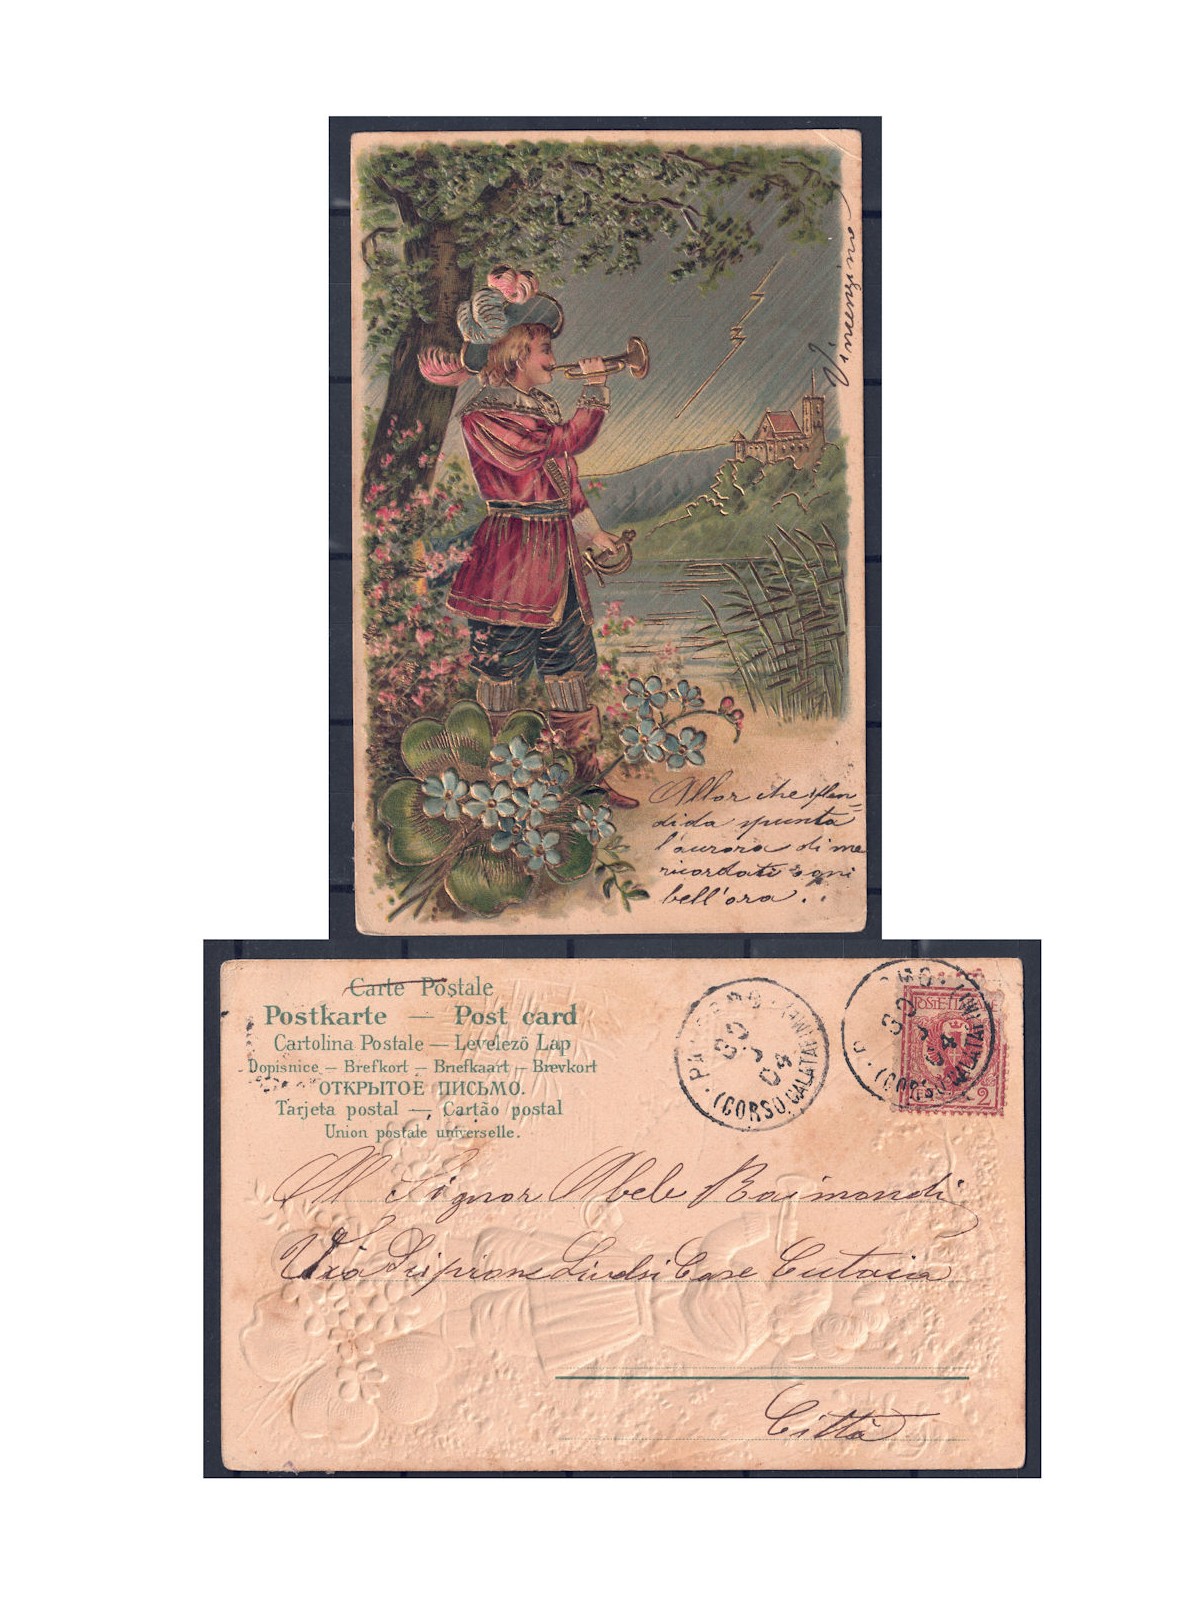 Vincenzino
Allor che splen=
dida spunta
l'aurora di me
ricordati ogni
bell'ora..
Carte Postale
Postkarte — Post card
Cartolina Postale — Levelező Lap
Dopisnice — Brefkort — Briefkaart — Brevkort
ОТКРЫТОЕ ПИСЬМО.
Tarjeta postal — Cartão postal
Union postale universelle.
(CORSO CALATAFIMI)
04
POSTE ITALIANE
2
Al Signor Abele Raimondi
Via Case
Città